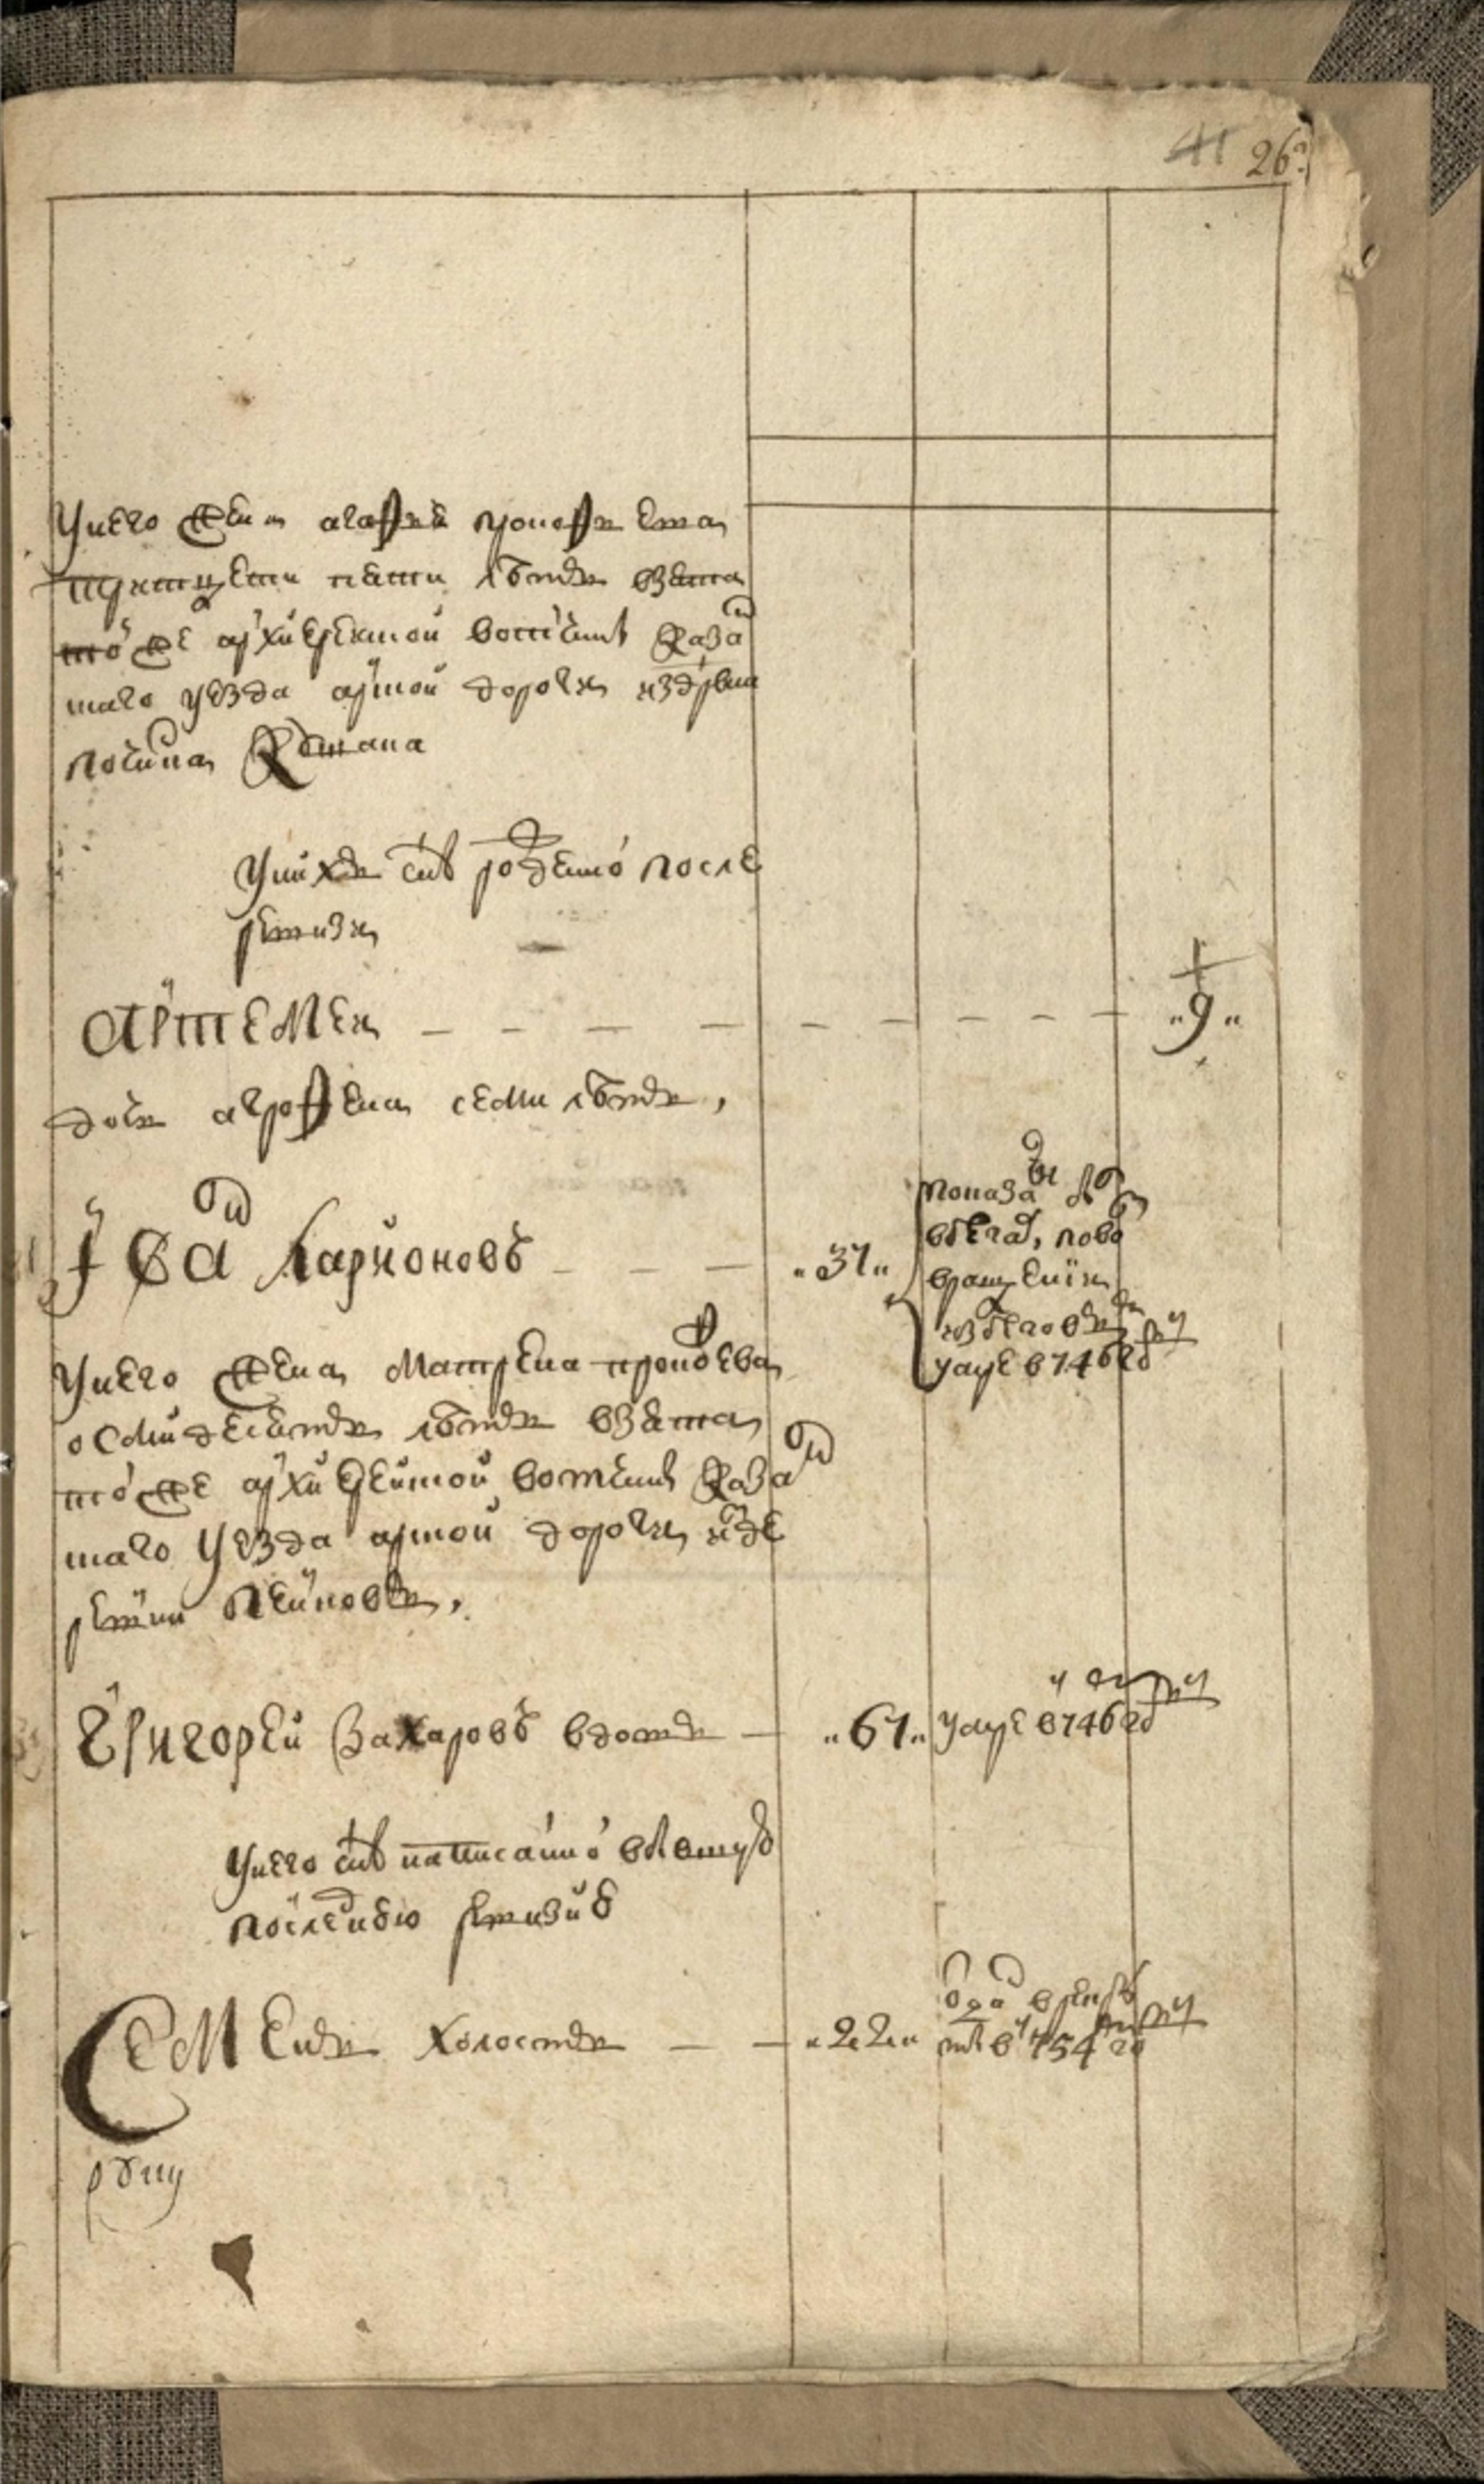 41 26
У него жена агафья прокофьева
тритцети пяти летъ взята
той же архиерейской вотчины казан
скаго уезда арской дороги из дрвни
починка Кошана
У нихъ сынъ рожденной после
ревизии
Артемей — — — — „9„
дочь агрофена семи летъ,
Иванъ Ларионовъ — — — „31„
показанъ
в бегах, по возвращении
из бегов
умре в 746 году
У него жена Матрена прокофьева
осмидесятъ летъ взята
той же архиерейской вотчины казан
скаго уезда арской дороги из де
ревни
Григорей Захаровъ вдовъ — „61„ умре в 746 году
У него сынъ написанной в
последнюю ревизию
Семенъ холостъ — — „22„ отданъ в рекру
ты в 754 году